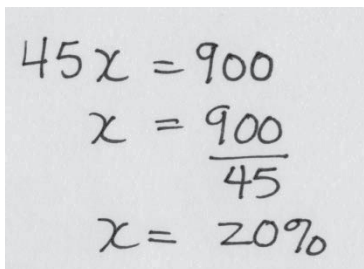 45x = 900
x = 900/45
x = 20%